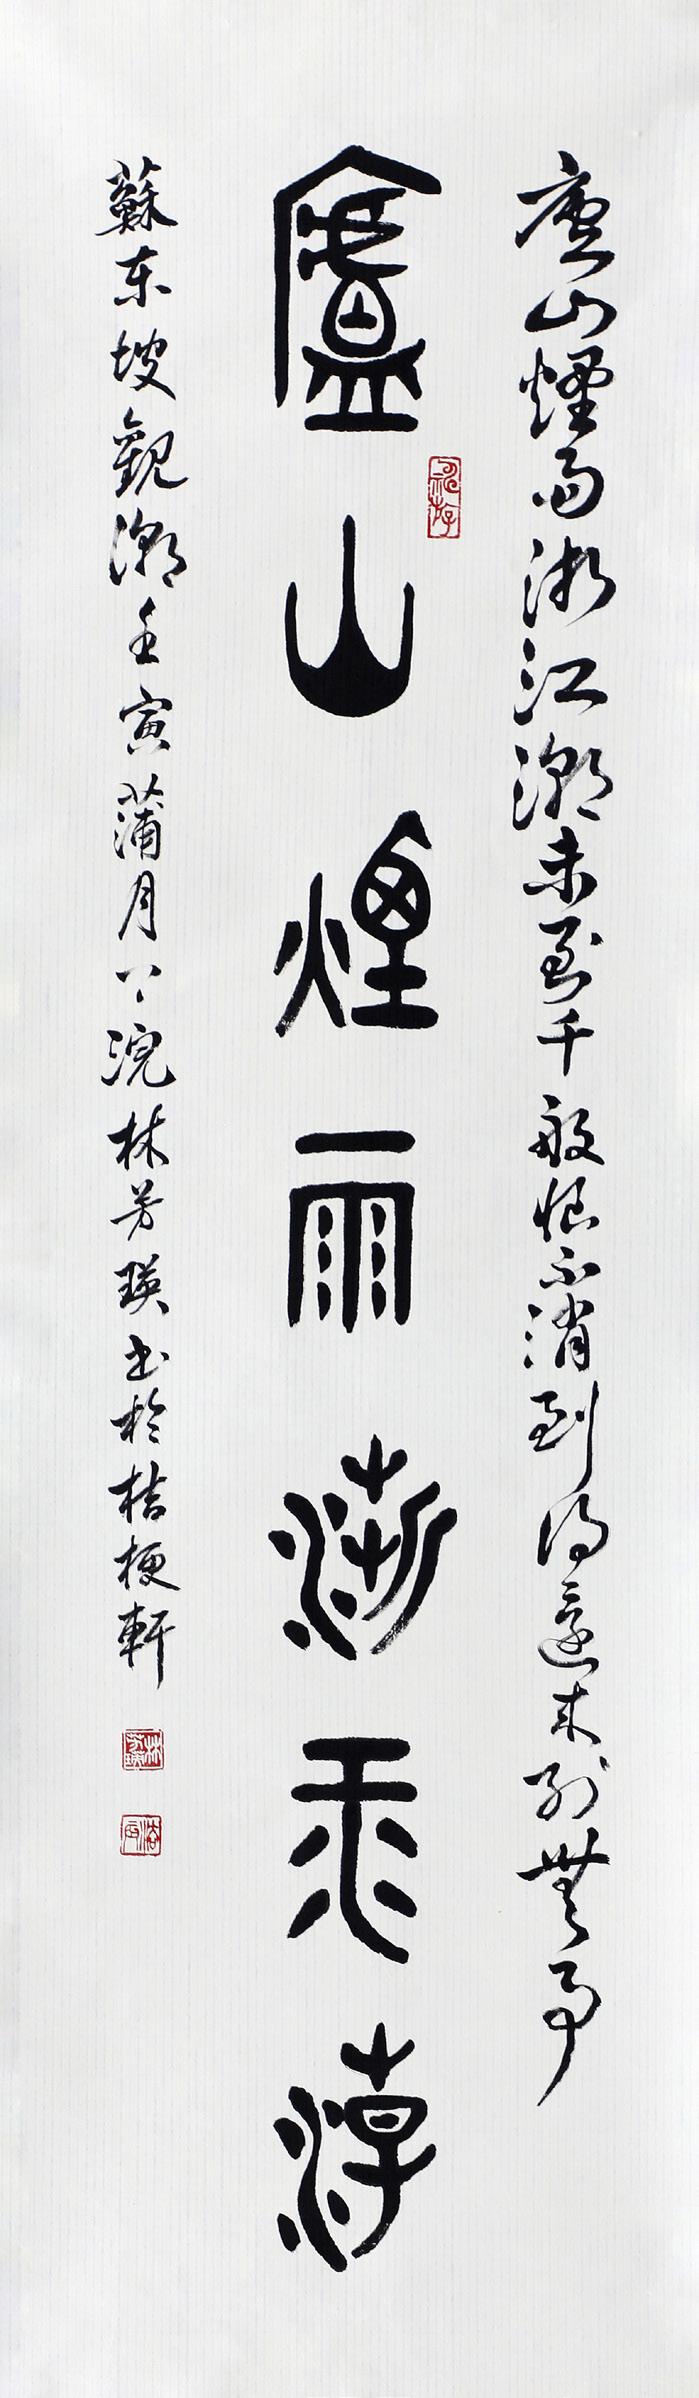 廬山煙雨浙江潮未至千般恨不消到得還來別無事
廬山煙雨浙江潮
蘇東坡觀潮壬寅蒲月浣林芳瑛書於桔梗軒
林芳瑛